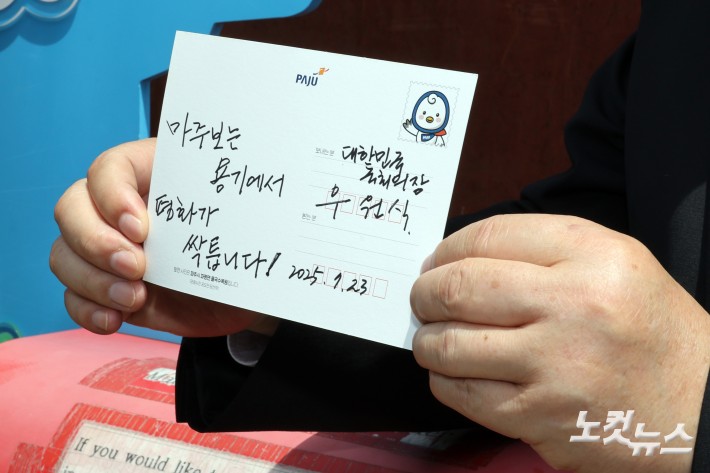 PAJU
마주보는
용기에서
평화가
싹틉니다!
보내는 분
대한민국
국회의장
우원식.
받는 분
2025. 7. 23
If you would like
노컷뉴스